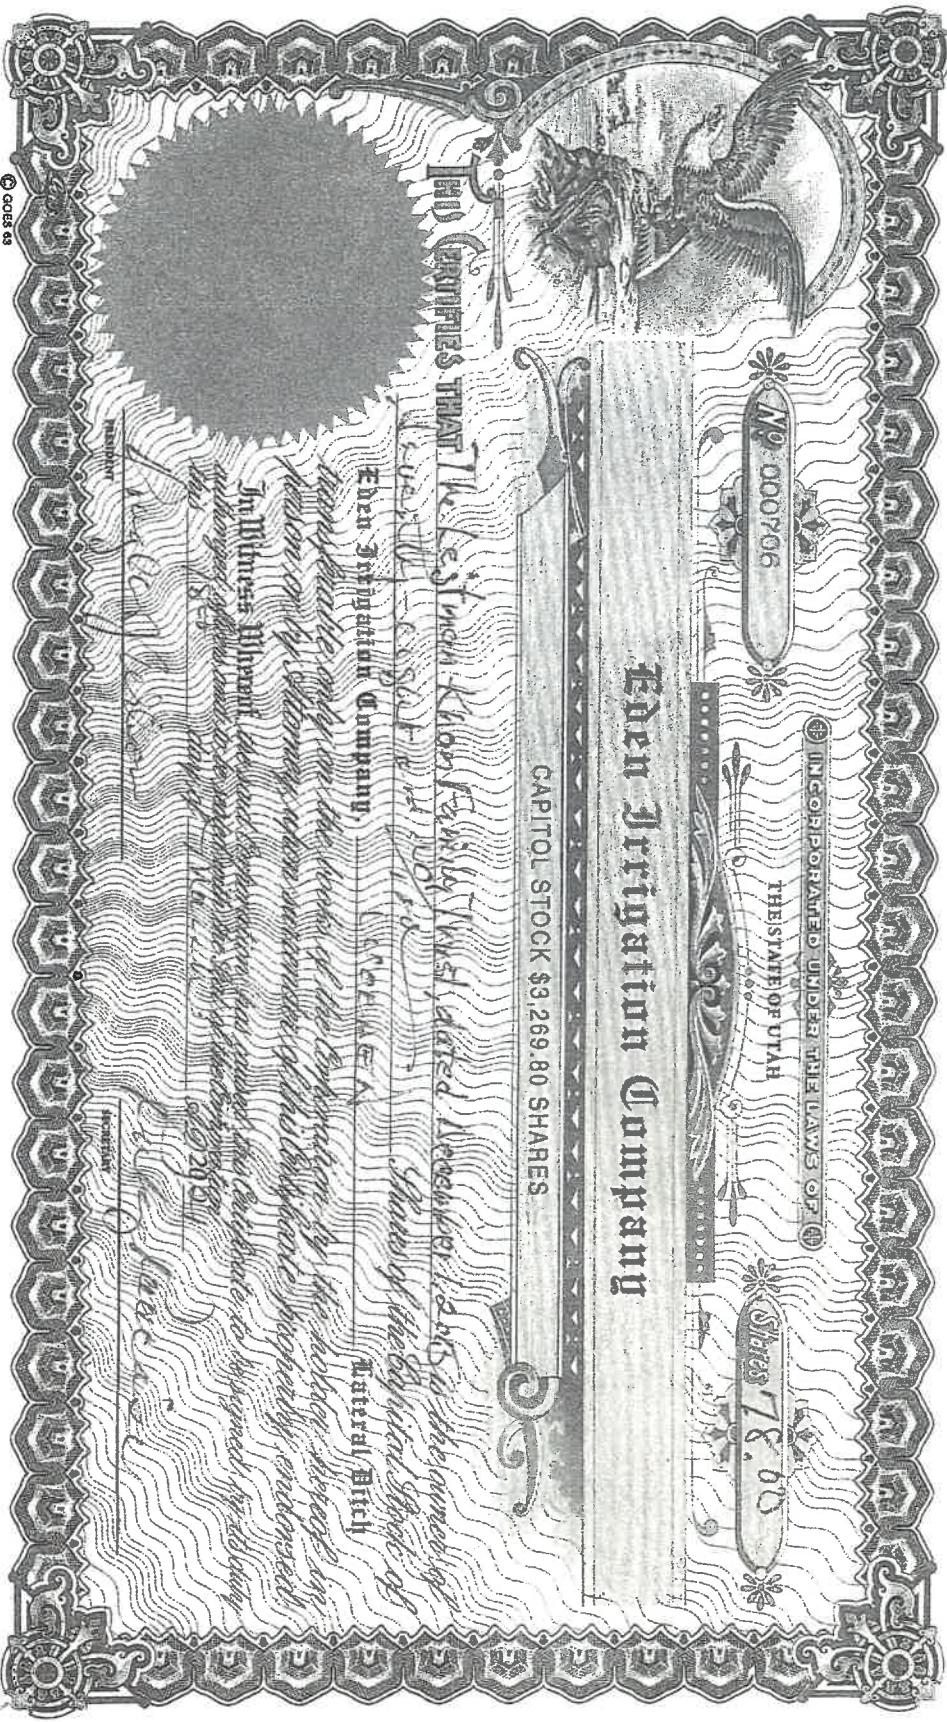 INCORPORATED UNDER THE LAWS OF
THE STATE OF UTAH
Nº 000706
Shares 78.00
Eden Irrigation Company
CAPITOL STOCK $3,269.80 SHARES
THIS CERTIFIES THAT The Khan Family Trust, dated December 1, is the owner of
Shares of the Capital Stock of
Eden Irrigation Company, Lateral Ditch
transferable only on the books of the Corporation by the holder hereof in
person or by Attorney upon surrender of this Certificate properly endorsed.
In Witness Whereof, the said Corporation has caused this Certificate to be signed by its duly
authorized officers and to be sealed with the Seal of the Corporation
this day of
PRESIDENT
SECRETARY
© GOES 63